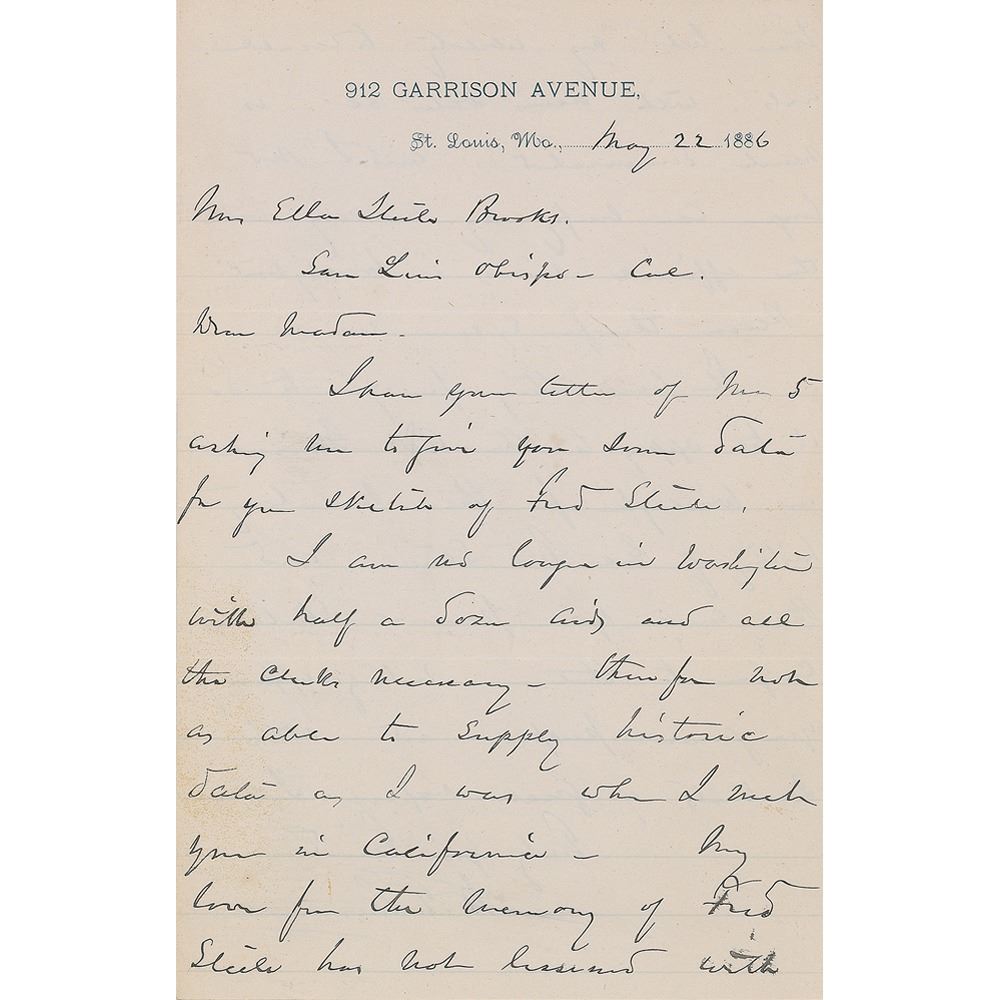 912 GARRISON AVENUE,
St. Louis, Mo., May 22 1886
Mrs Ella Steele Brooks.
San Luis Obispo - Cal.
Dear Madam.
I have your letter of May 5
asking me to give you some data
for your sketch of Fred Steele.
I am no longer in Washington
with half a dozen aids and all
the clerks necessary - therefore not
as able to supply historic
data as I was when I met
you in California - My
love for the memory of Fred
Steele has not lessened with